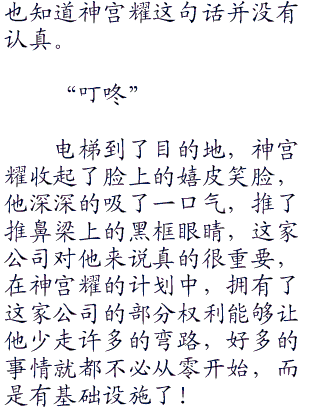 也知道神宫耀这句话并没有
认真。
“叮咚”
电梯到了目的地，神宫
耀收起了脸上的嬉皮笑脸，
他深深的吸了一口气，推了
推鼻梁上的黑框眼睛，这家
公司对他来说真的很重要，
在神宫耀的计划中，拥有了
这家公司的部分权利能够让
他少走许多的弯路，好多的
事情就都不必从零开始，而
是有基础设施了！